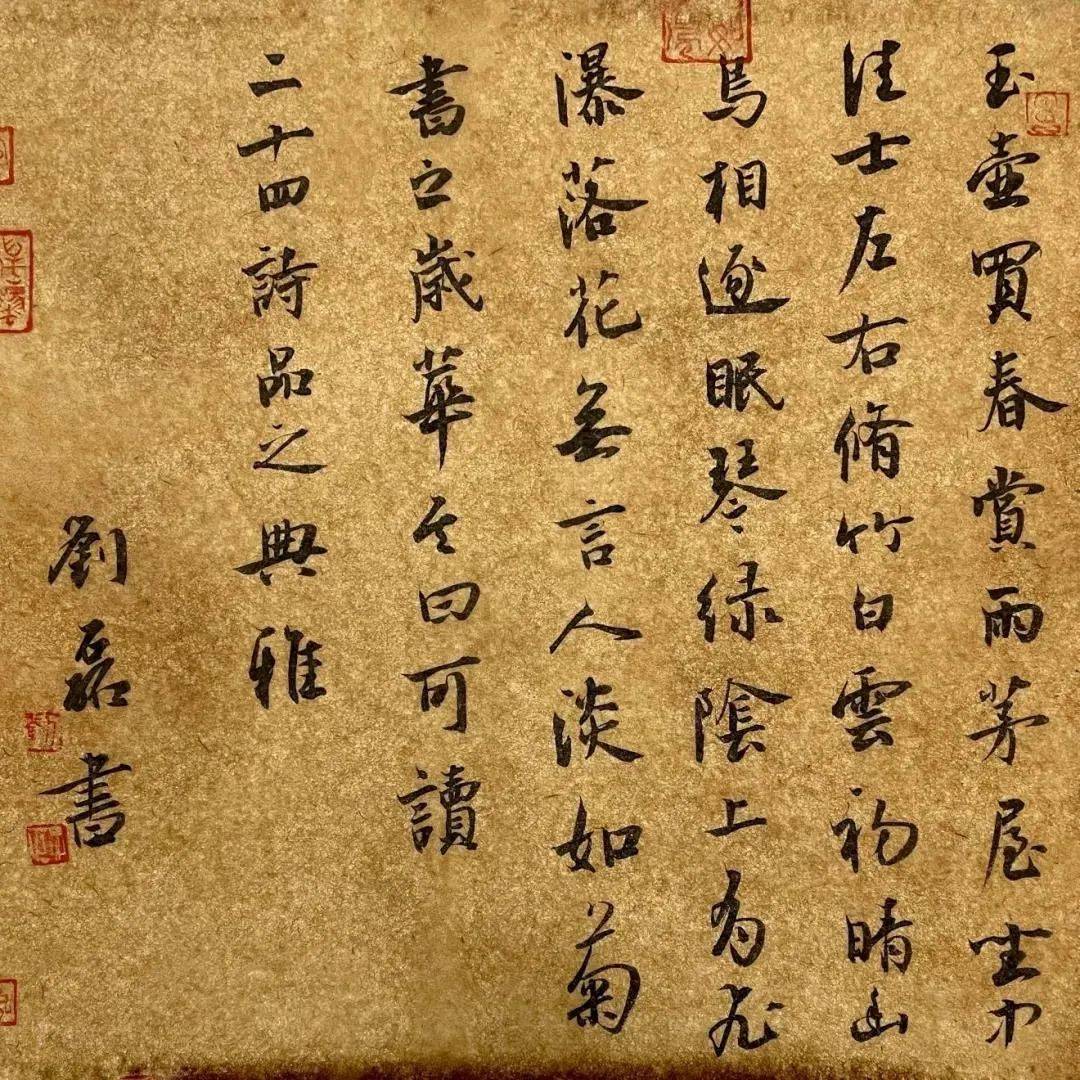 玉壺買春賞雨茅屋坐中
佳士左右脩竹白雲初晴幽
鳥相逐眠琴綠陰上有飛
瀑落花無言人淡如菊
書之歲華其曰可讀
二十四詩品之典雅
劉磊書